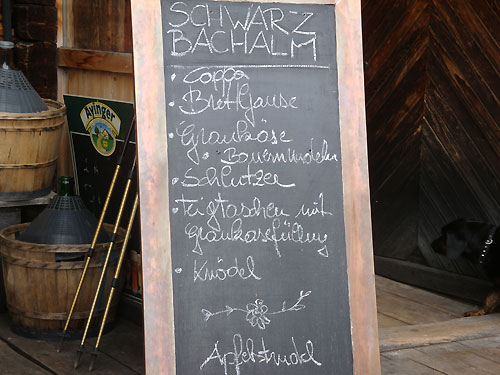 SCHWARZ
BACHALM
• Coppa
• Brettljause
• Graukäse
• Bauernnudeln
• Schlutzer
• Teigtaschen mit
Graukäsefüllung
• Knödel
Apfelstrudel
Ayinger